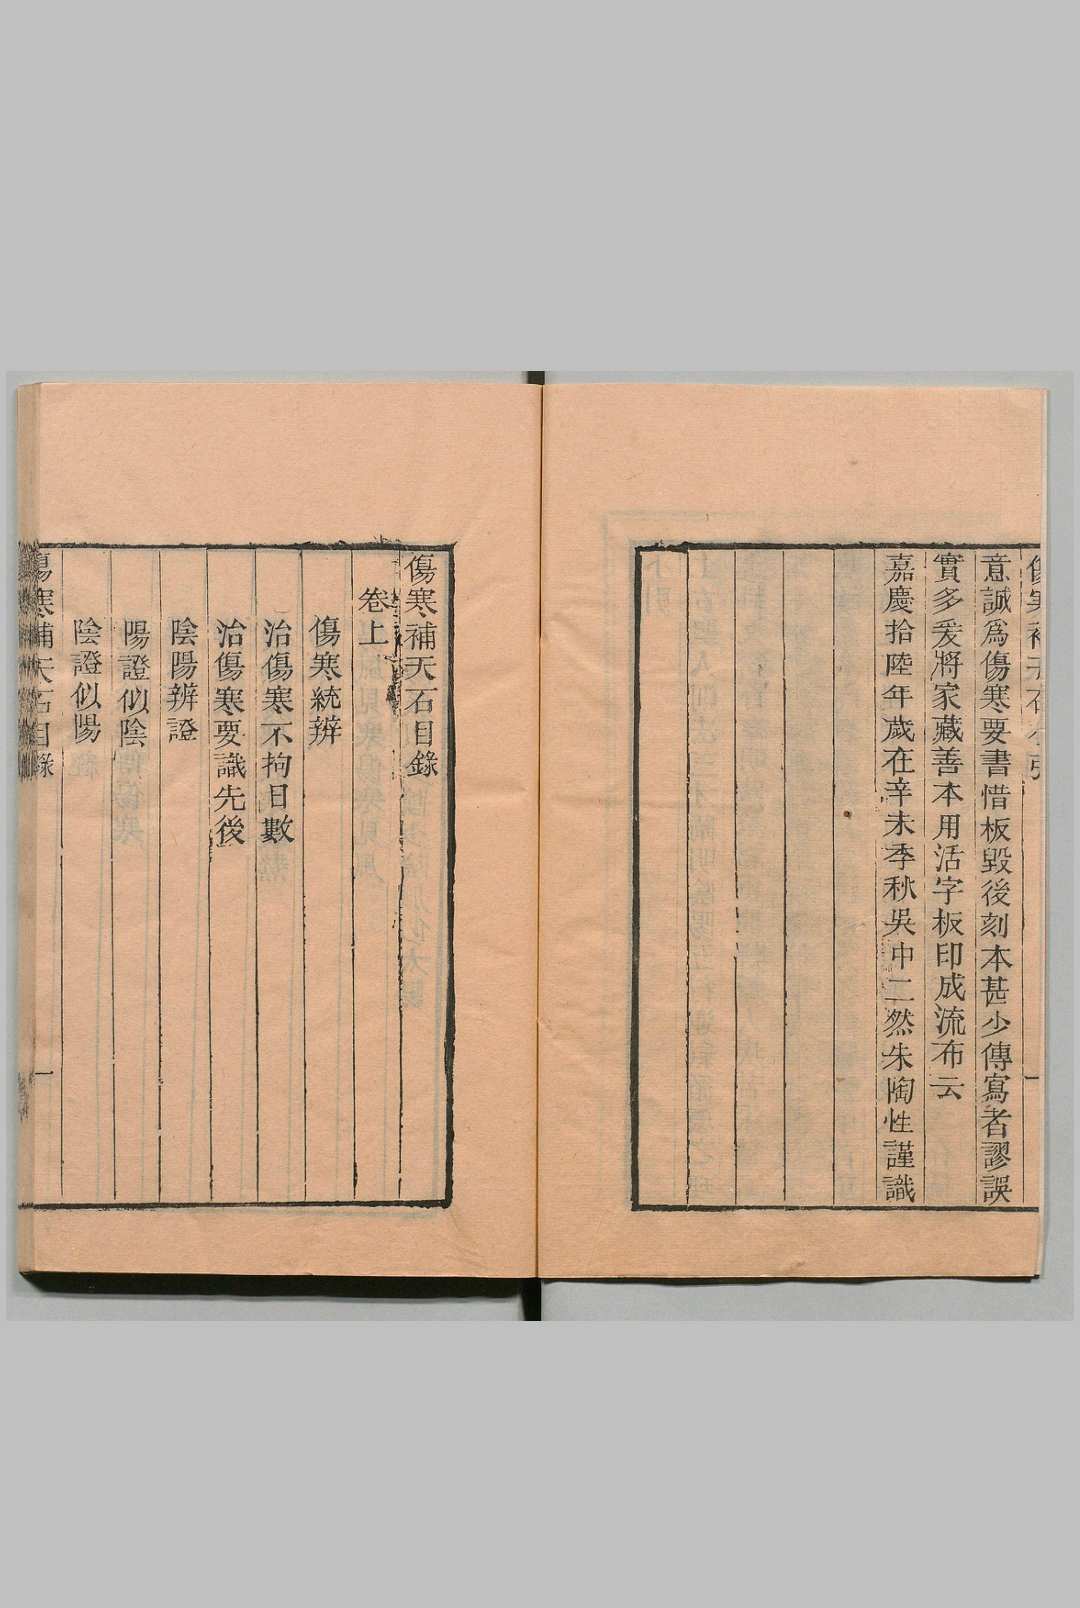 傷寒補天石小引
一
意誠爲傷寒要書惜板毀後刻本甚少傳寫者謬誤
實多爰將家藏善本用活字板印成流布云
嘉慶拾陸年歲在辛未季秋吳中二然朱陶性謹識
傷寒補天石目錄
卷上
傷寒統辨
治傷寒不拘日數
治傷寒要識先後
陰陽辨證
陽證似陰
陰證似陽
傷寒補天石目錄
一